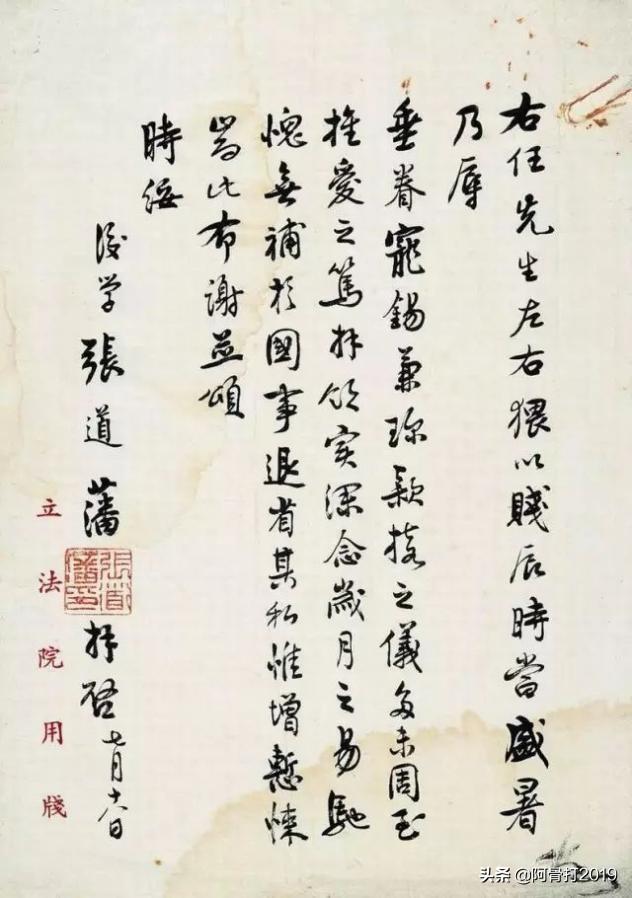 右任先生左右猥以賤辰時當盛暑
乃辱
垂眷寵錫兼珍款接之儀多未周至
推愛之篤拜領实深念歲月之易馳
愧無補於國事退省其私惟增慙悚
耑此布謝並頌
時綏
後学張道藩拜啓七月日
張道藩印
立法院用牋
头条 @阿骨打2019